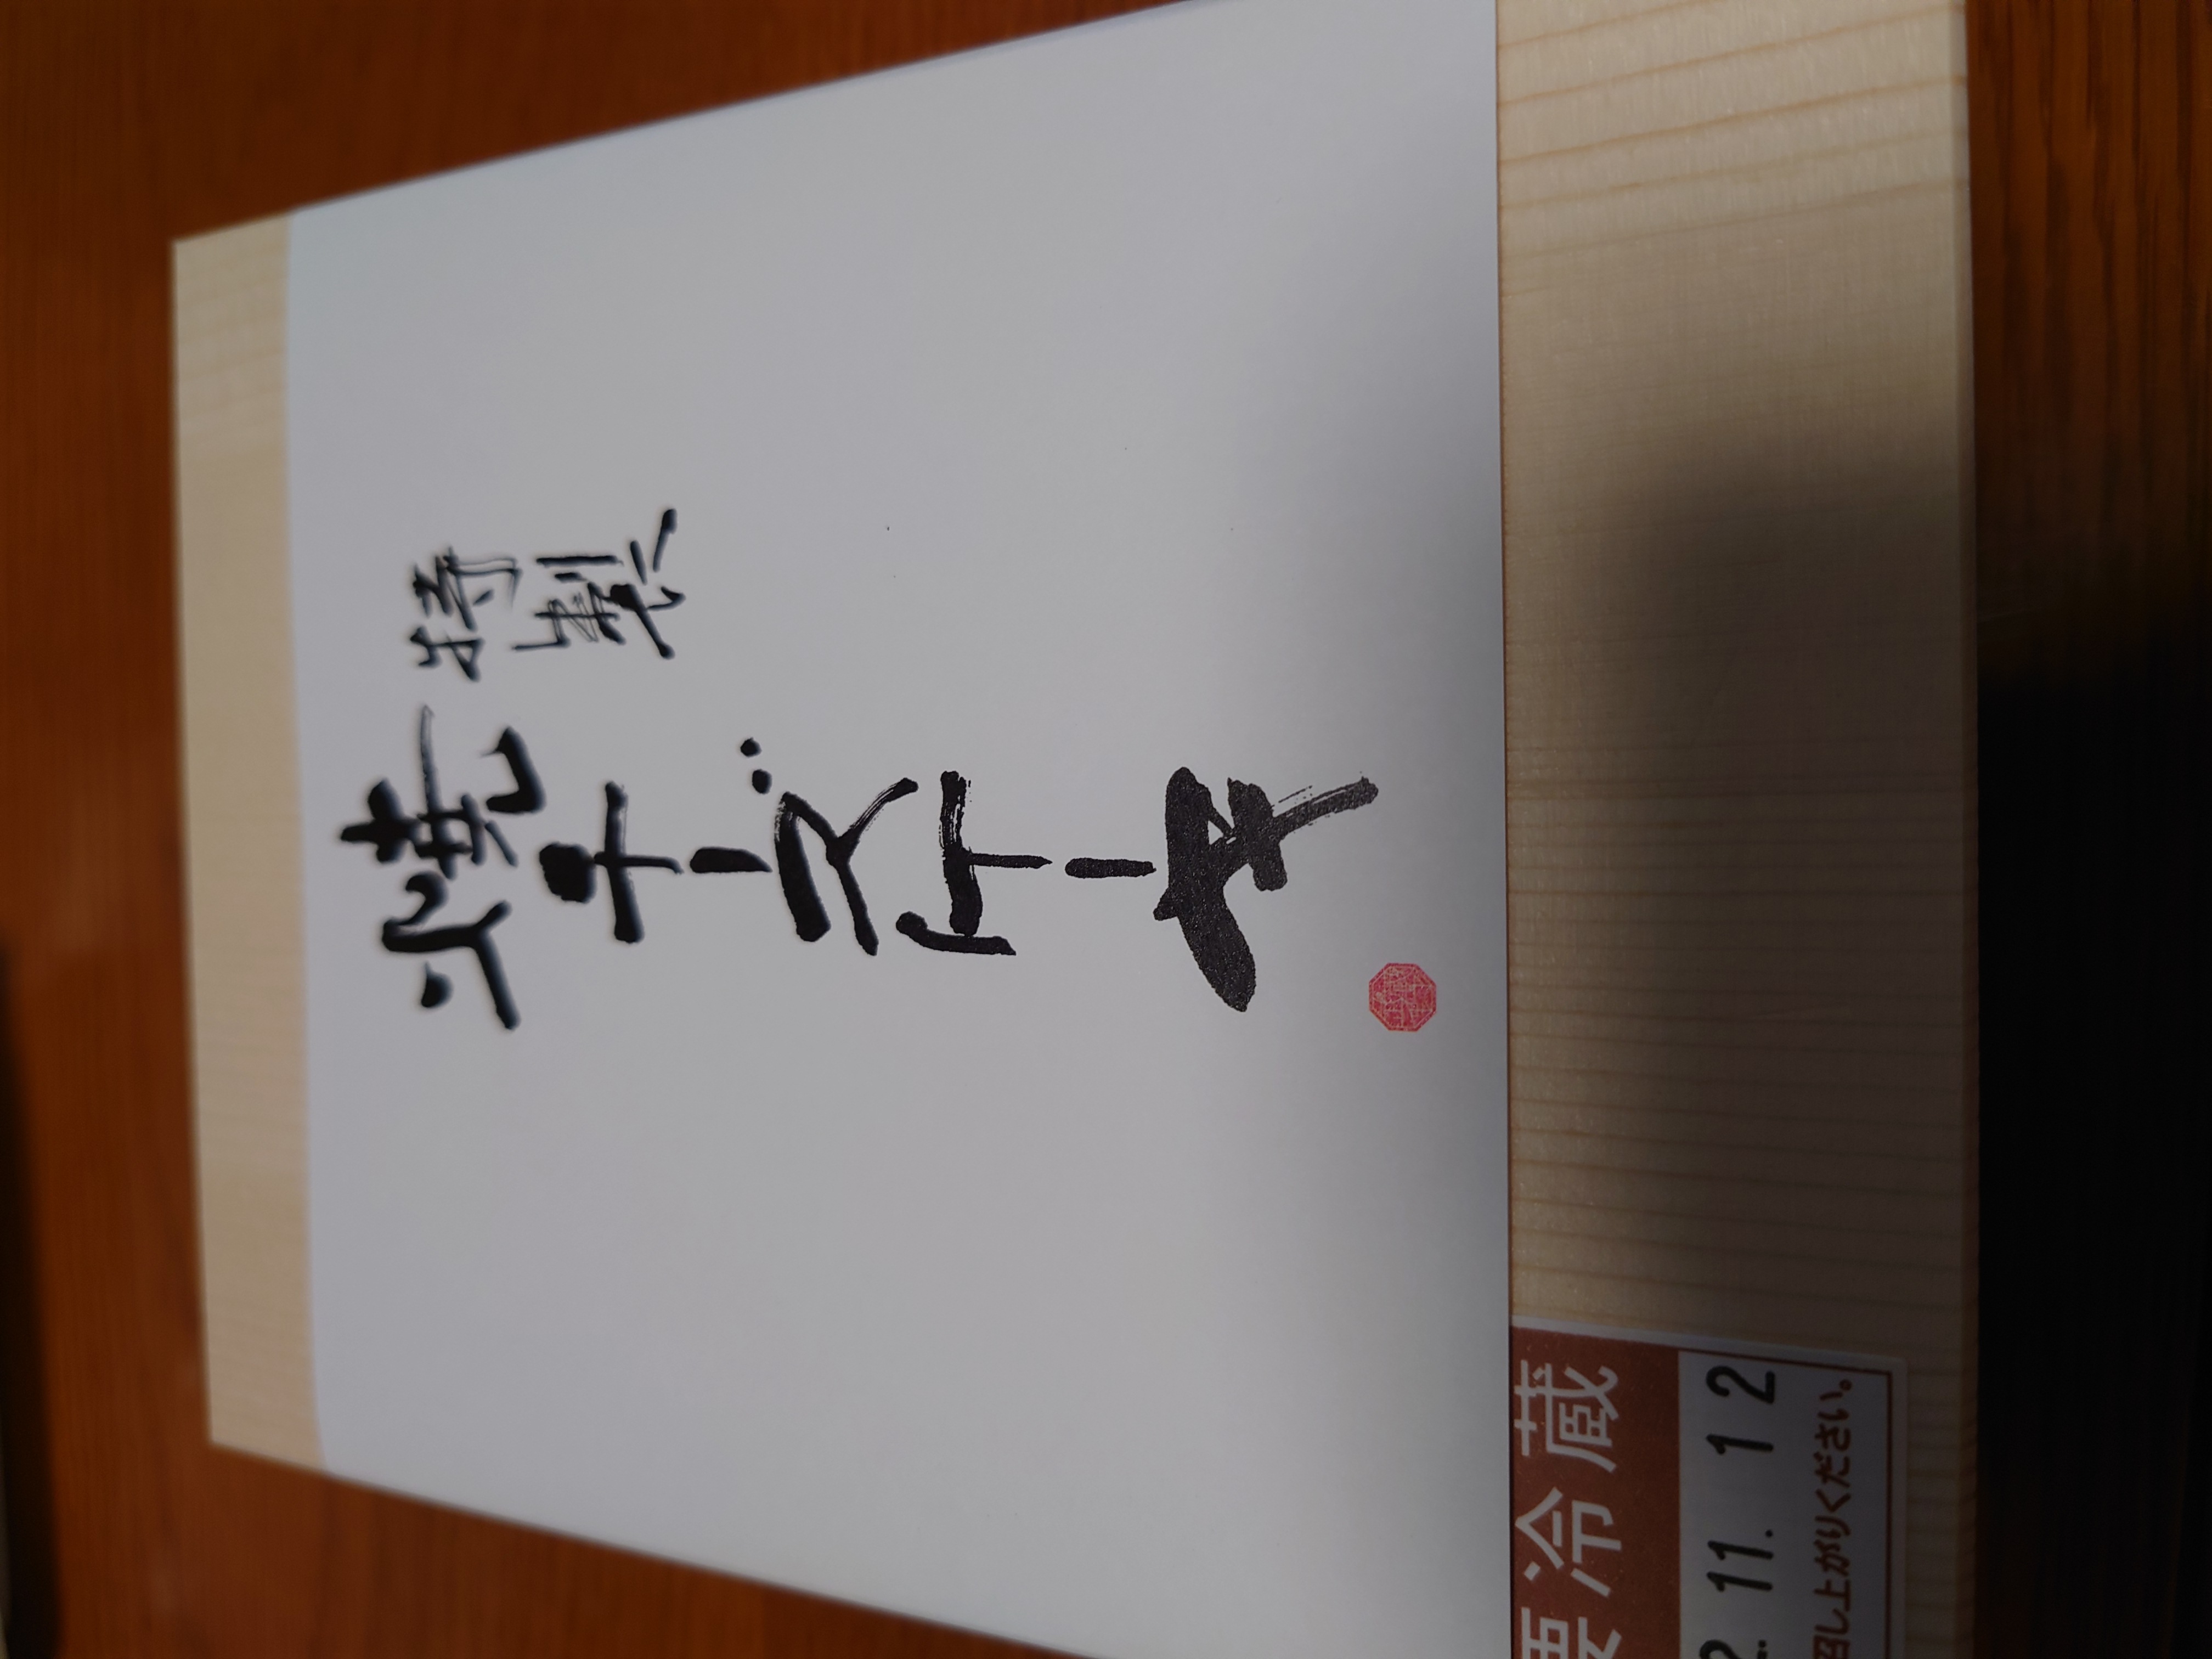 特製
焼チーズケーキ
要冷蔵
2. 11. 12
召し上がりください。